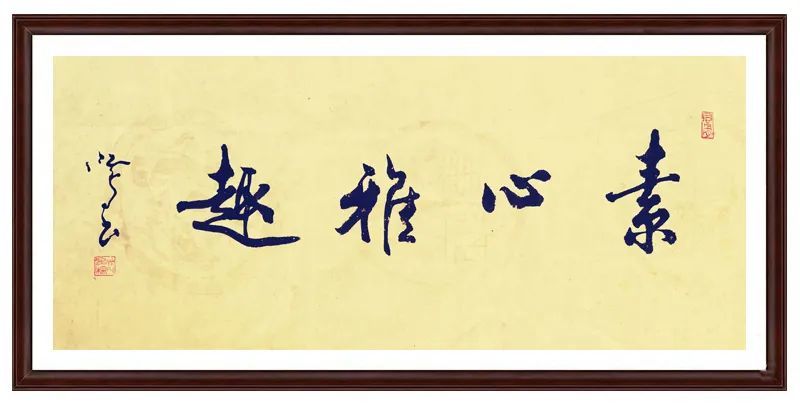 素心雅趣